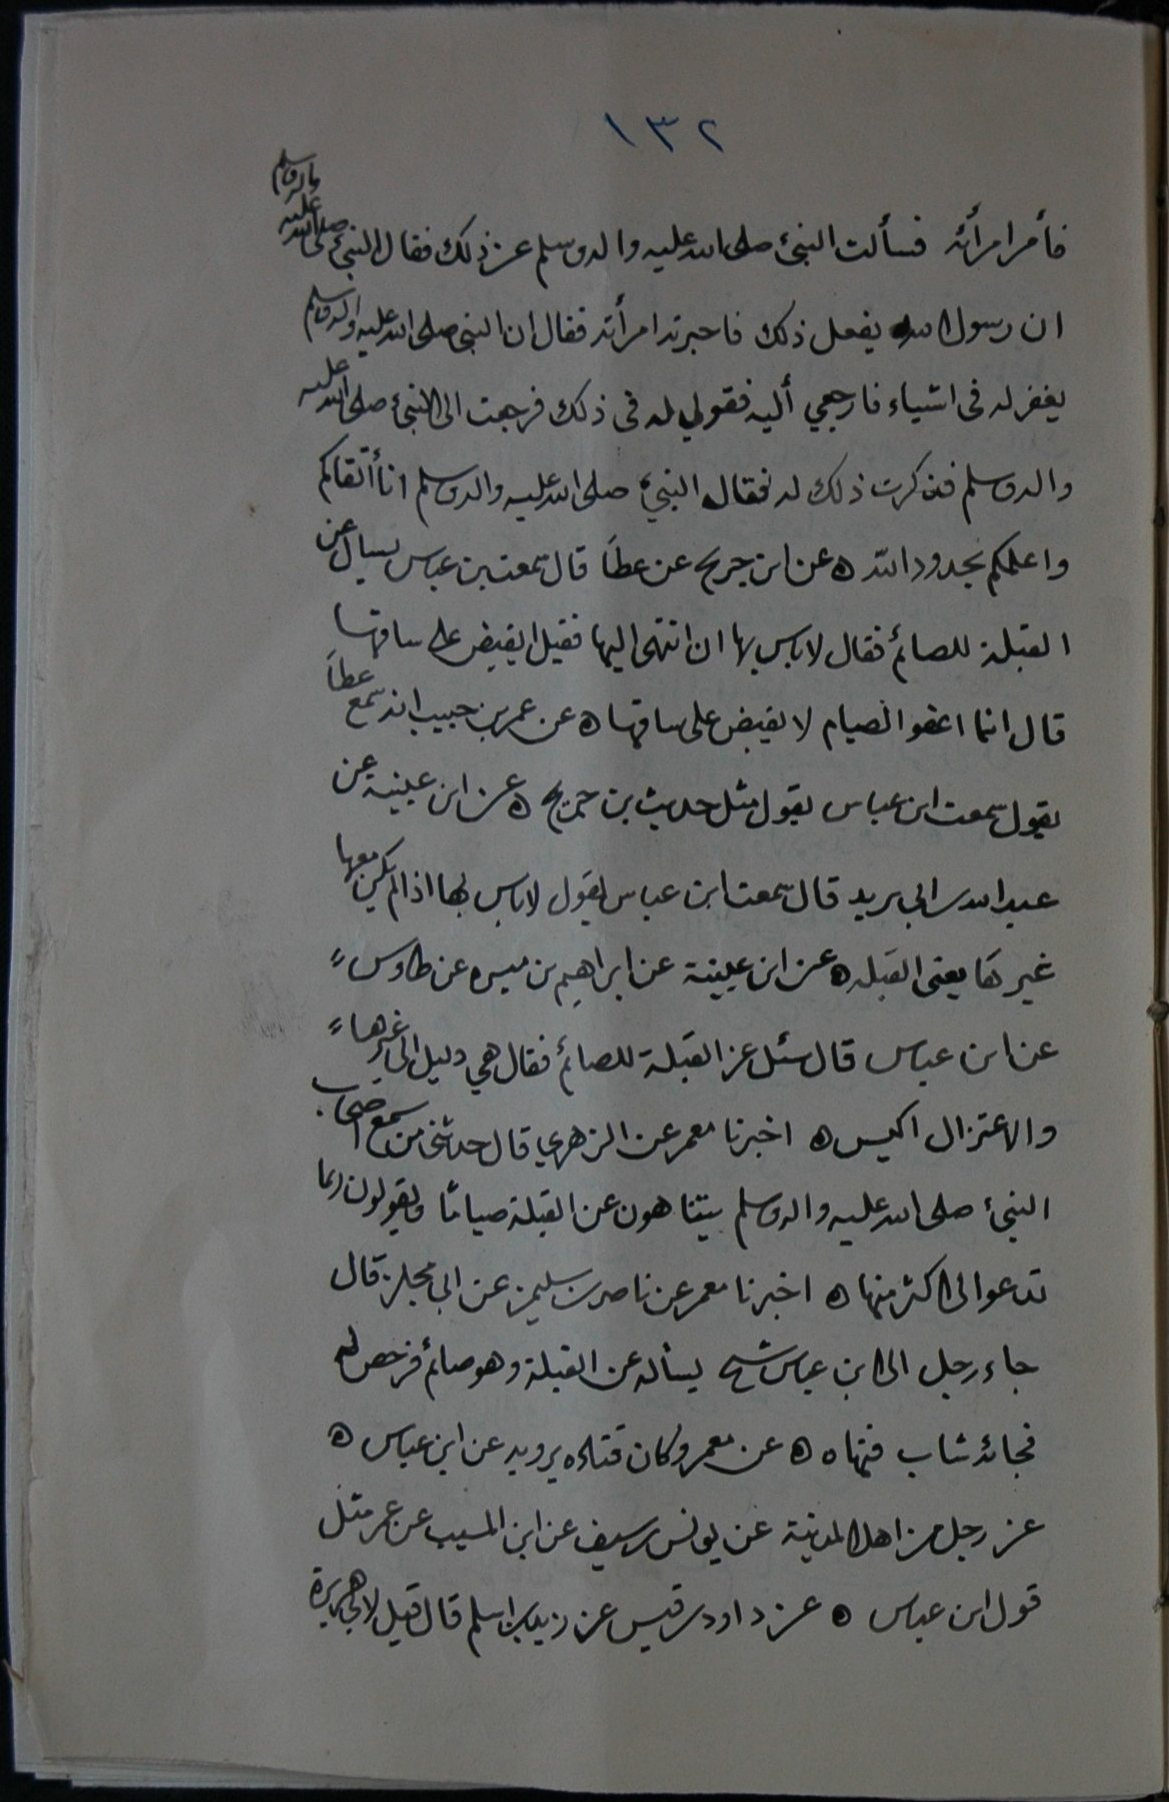 ١٣٢
فأمر امرأته فسألت النبئ صلى الله عليه واله وسلم عن ذلك فقال النبئ صلى الله عليه واله وسلم
ان رسول الله يفعل ذلك فاخبرته امرأته فقال ان النبى صلى الله عليه واله وسلم
يغفر له فى اشياء فارجعي أليه فقولي له فى ذلك فرجعت الى النبئ صلى الله عليه
واله وسلم فذكرت ذلك له فقال النبئ صلى الله عليه واله وسلم انا أتقاكم
واعلمكم بحدود الله ه عن ابن جريج عن عطآ قال سمعت بن عباس يسال عن
القبلة للصائم فقال لا باس بها ان انتهى اليها فقيل ايقبض على ساقها
قال انما اعفو الصيام لا يقبض على ساقها ه عن عمر بن حبيب انه سمع عطآ
يقول سمعت ابن عباس يقول مثل حديث بن جريج ه عن ابن عيينة عن
عبيد الله بن ابى يريد قال سمعت ابن عباس يقول لا باس بها اذا لم يكن معها
غيرها يعنى القبله ه عن ابن عيينة عن ابراهيم بن ميسره عن طاوس
عن ابن عباس قال سئل عن القبلة للصائم فقال هي دليل الى غيرها
والاعتزال اكيس ه اخبرنا معمر عن الزهري قال حدثنى من سمع اصحاب
النبئ صلى الله عليه واله وسلم يتناهون عن القبلة صياما ويقولون انما
تدعوا لى اكثر منها ه اخبرنا معمر عن ناصر بن سليم عن ابى مجلز قال
جاء رجل الى ابن عباس شيخ يسأله عن القبلة وهو صائم فرخص له
فجائه شاب فنهاه ه عن معمر وكان قتاده يرويه عن ابن عباس ه
عن رجل من اهل المدينة عن يونس بن سيف عن ابن المسيب عن عمر مثل
قول ابن عباس ه عن داود بن قيس عن زيد بن اسلم قال قيل لابى هريرة